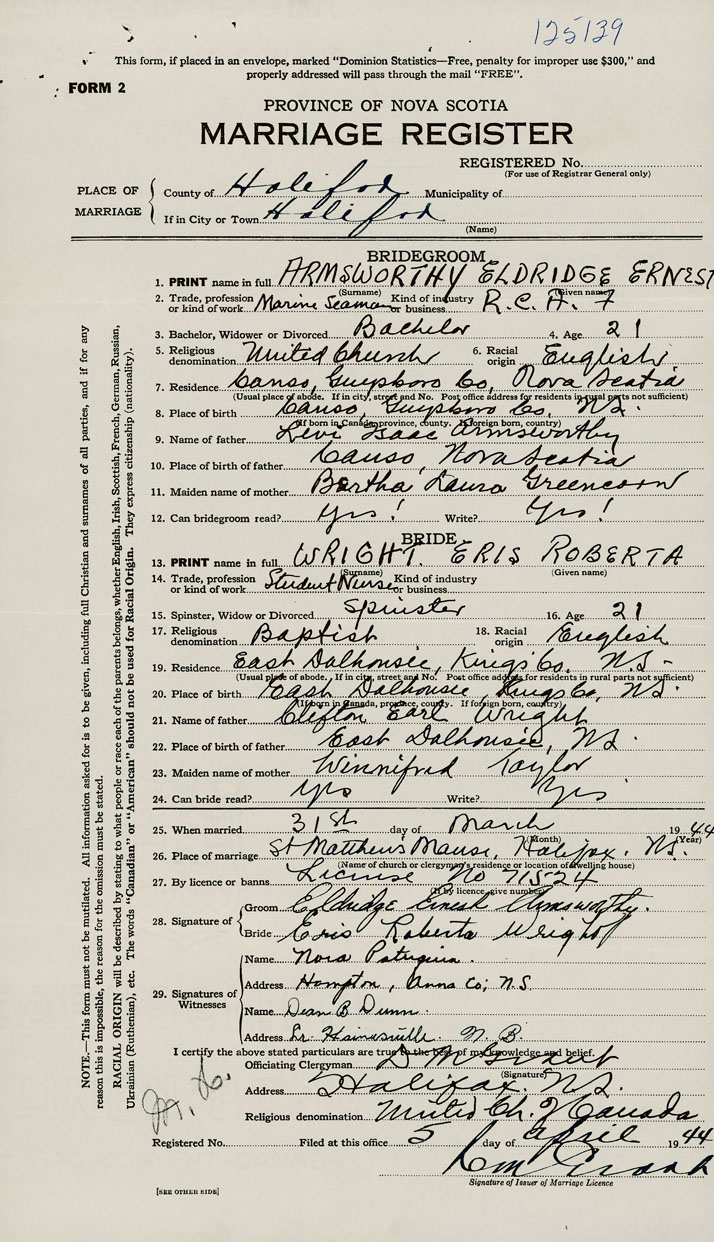 125139
This form, if placed in an envelope, marked "Dominion Statistics—Free, penalty for improper use $300," and
properly addressed will pass through the mail "FREE".
FORM 2
PROVINCE OF NOVA SCOTIA
MARRIAGE REGISTER
REGISTERED No.
(For use of Registrar General only)
PLACE OF MARRIAGE
County of Halifax Municipality of
If in City or Town Halifax
(Name)
BRIDEGROOM
1. PRINT name in full ARMSWORTHY ELDRIDGE ERNEST
(Surname) (Given name)
2. Trade, profession or kind of work Marine Seaman Kind of industry or business R.C.A.F
3. Bachelor, Widower or Divorced Bachelor 4. Age 21
5. Religious denomination United Church 6. Racial origin English
7. Residence Canso, Guysboro Co, Nova Scotia
(Usual place of abode. If in city, street and No. Post office address for residents in rural parts not sufficient)
8. Place of birth Canso, Guysboro Co, N.S.
(If born in Canada, province, county. If foreign born, country)
9. Name of father Levi Isaac Armsworthy
10. Place of birth of father Canso, Nova Scotia
11. Maiden name of mother Bertha Laura Greencorn
12. Can bridegroom read? Yes! Write? Yes!
BRIDE
13. PRINT name in full WRIGHT. ERIS ROBERTA
(Surname) (Given name)
14. Trade, profession or kind of work Student Nurse Kind of industry or business
15. Spinster, Widow or Divorced Spinster 16. Age 21
17. Religious denomination Baptist 18. Racial origin English
19. Residence East Dalhousie, Kings Co. N.S-
(Usual place of abode. If in city, street and No. Post office address for residents in rural parts not sufficient)
20. Place of birth East Dalhousie, Kings Co, N.S.
(If born in Canada, province, county. If foreign born, country)
21. Name of father Clifton Earl Wright
22. Place of birth of father East Dalhousie, N.S.
23. Maiden name of mother Winnifred Taylor
24. Can bride read? Yes Write? Yes
25. When married 31st day of March 1944
(Month) (Year)
26. Place of marriage St Matthew's Manse, Halifax. N.S.
(Name of church or clergyman's residence or location of dwelling house)
27. By licence or banns License No 71524
(If by licence, give number)
28. Signature of
Groom Eldridge Ernest Armsworthy.
Bride Eris Roberta Wright
29. Signatures of Witnesses
Name Nora
Address Hampton, Anna Co; N.S.
Name Dean B Dunn
Address N. B.
I certify the above stated particulars are true to the best of my knowledge and belief.
Officiating Clergyman D M Grant
(Signature)
Address Halifax. N.S.
Religious denomination United Ch. of Canada
Registered No. Filed at this office 5 day of April 1944
Signature of Issuer of Marriage Licence
[SEE OTHER SIDE]
NOTE.—This form must not be mutilated. All information asked for is to be given, including full Christian and surnames of all parties, and if for any
reason this is impossible, the reason for the omission must be stated.
RACIAL ORIGIN will be described by stating to what people or race each of the parents belongs, whether English, Irish, Scottish, French, German, Russian,
Ukrainian (Ruthenian), etc. The words "Canadian" or "American" should not be used for Racial Origin. They express citizenship (nationality).